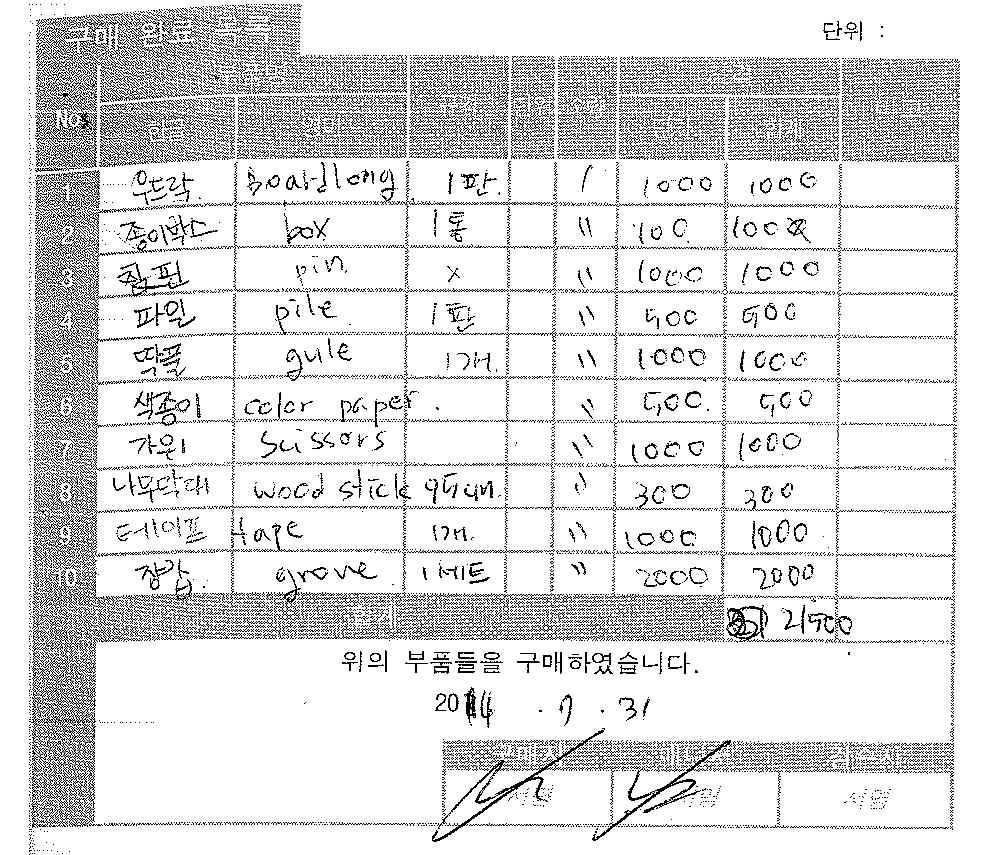 구매 완료 목록
단위 :
No.
한글
1 우드락. boardlong 1판. 1 1000 1000
2 종이박스 box 1통 " 100 100
3 침핀 pin x " 1000 1000
4 파일 pile 1판 " 500 500
5 딱풀 gule 1개. " 1000 1000
6 색종이 color paper. " 500. 500
7 가위 scissors " 1000 1000
8 나무막대 wood stick 95cm. " 300 300
9 테이프 tape 1개. " 1000 1000
10 장갑. grove 1세트 " 2000 2000
21500
위의 부품들을 구매하였습니다.
2014 . 7 . 31
서명 서명 서명